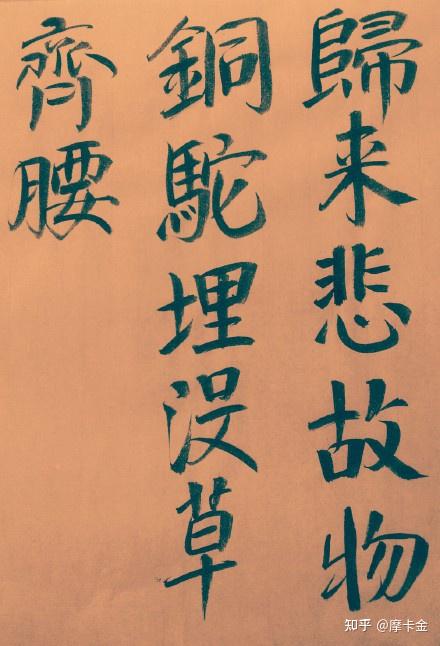 歸来悲故物
銅駝埋没草
齊腰
知乎 @摩卡金